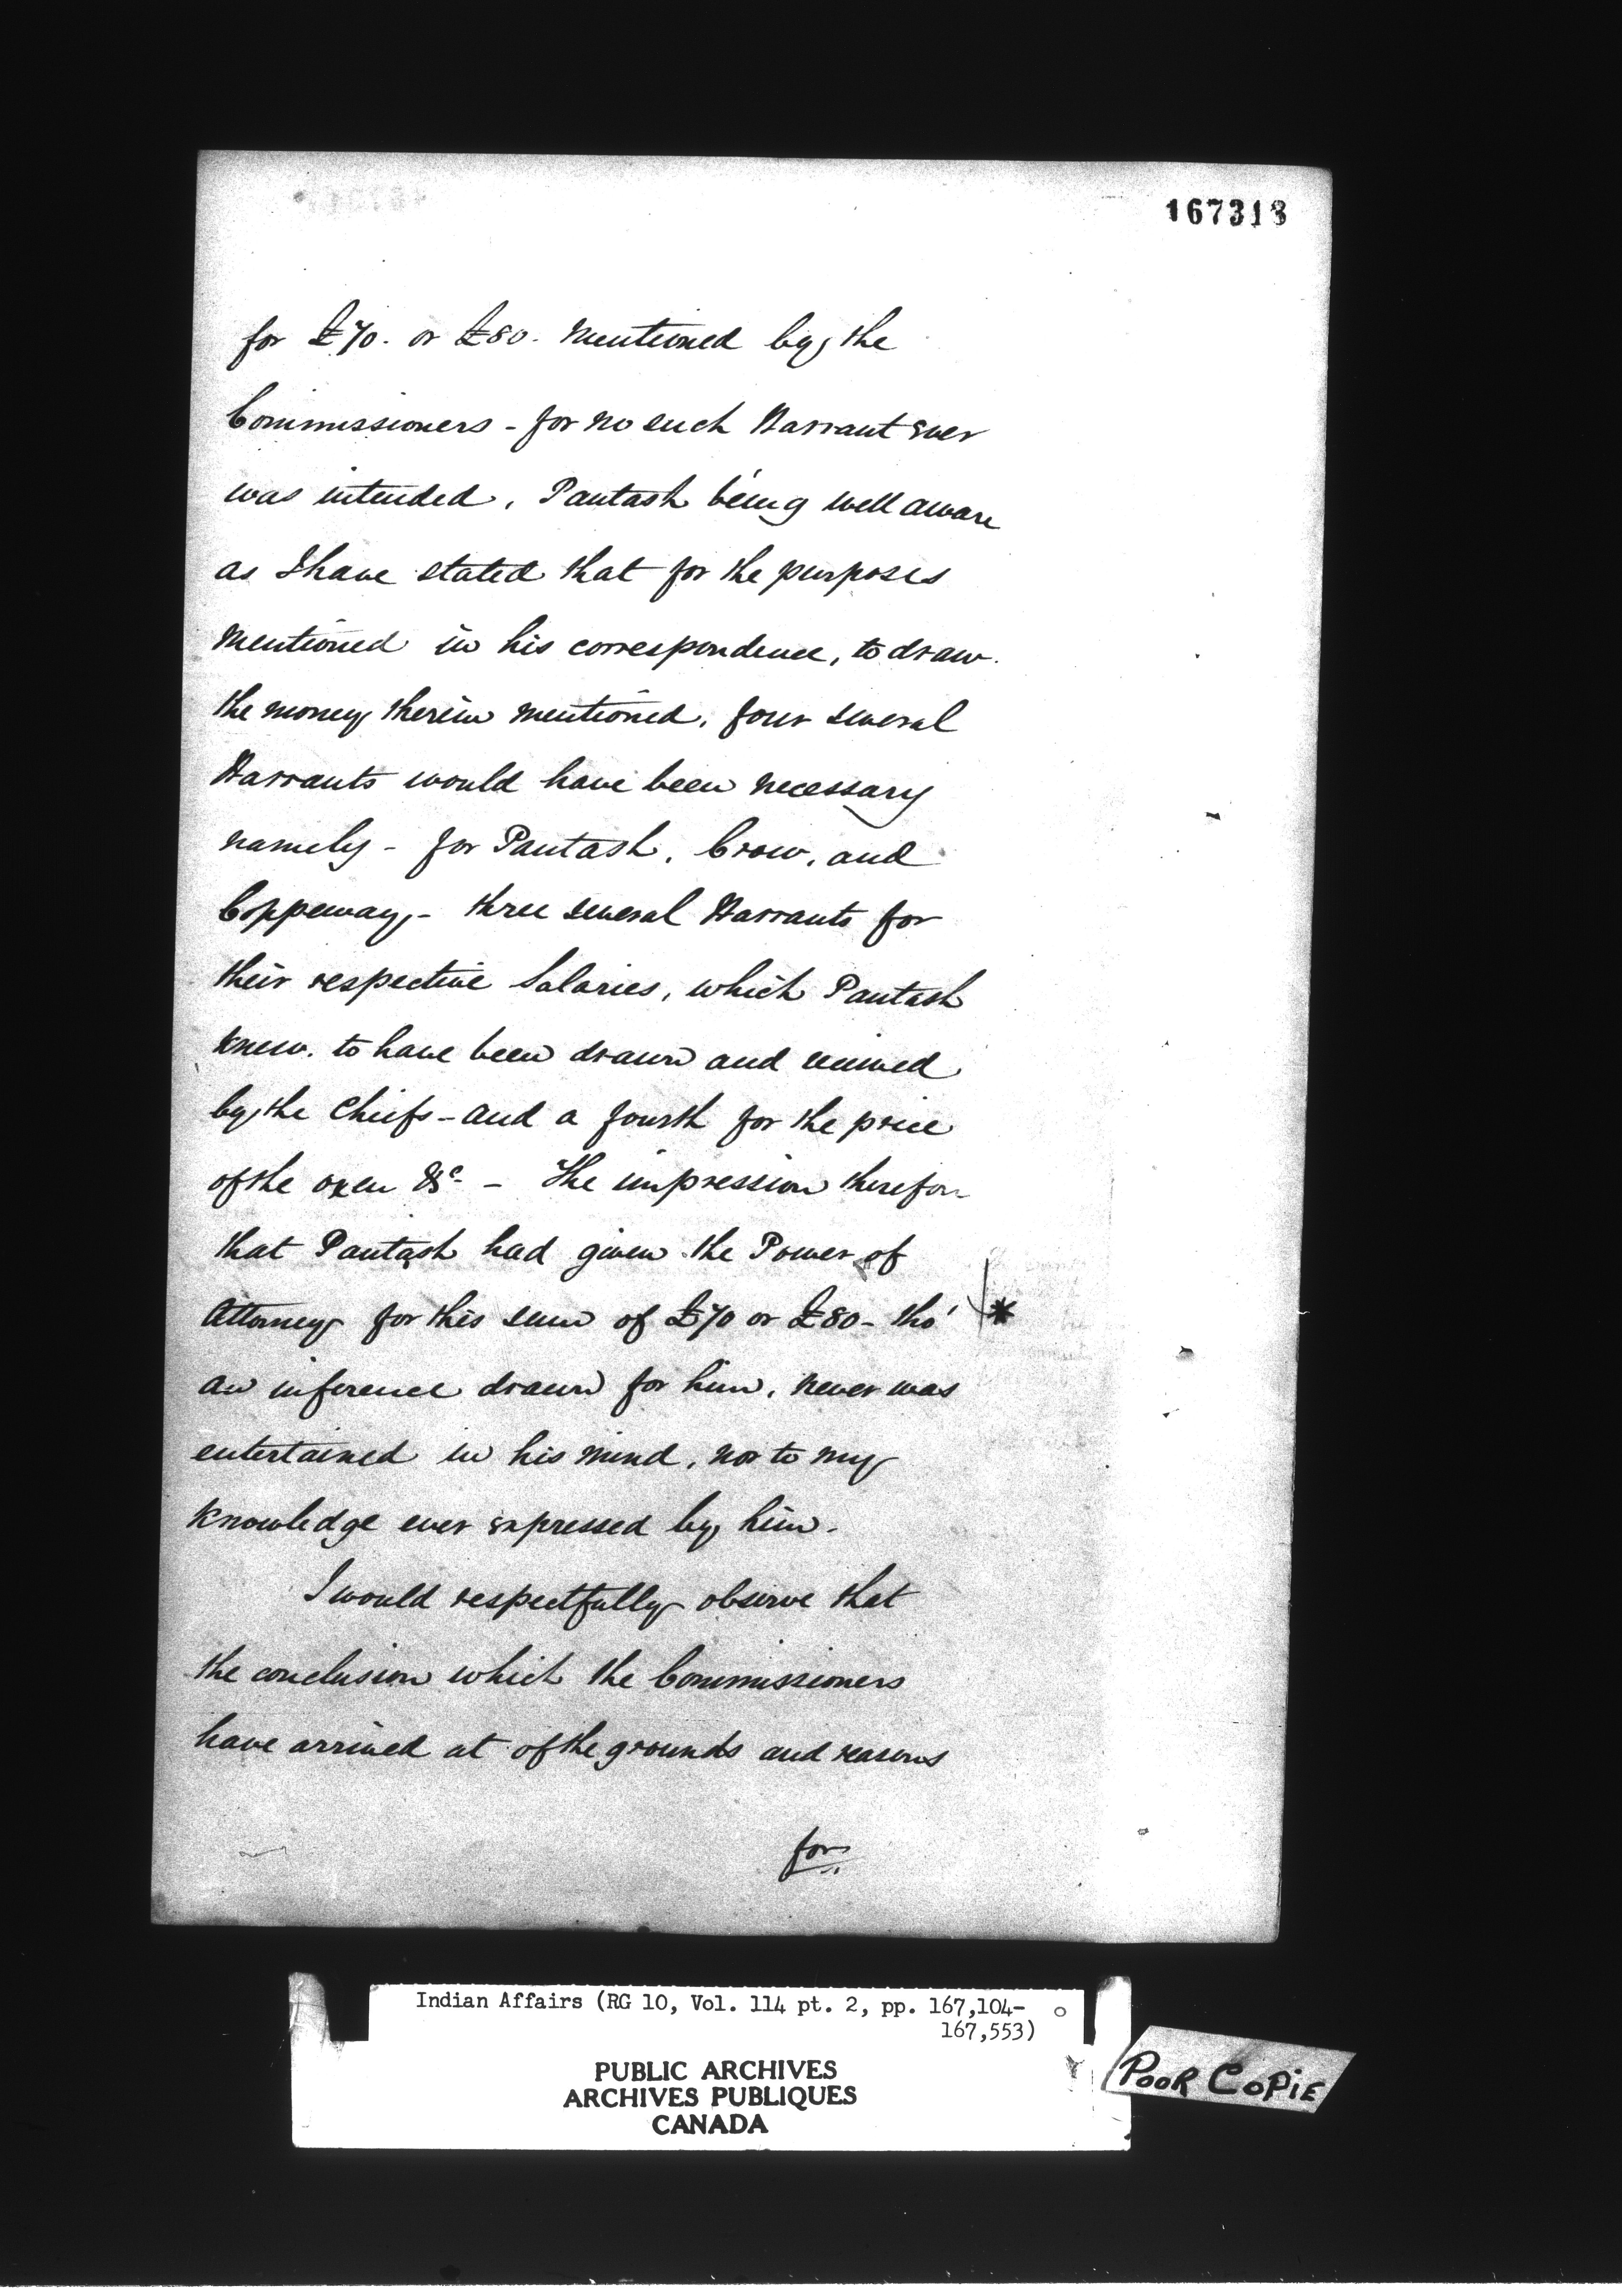 167313
for £70. or £80. mentioned by the
Commissioners - for no such Warrant ever
was intended, Pautash being well aware
as I have stated that for the purposes
mentioned in his correspondence, to draw
the money therein mentioned, four several
Warrants would have been necessary
namely - for Pautash, Crow, and
Coppeway, - three several Warrants for
their respective Salaries, which Pautash
knew. to have been drawn and received
by the Chiefs - and a fourth for the price
of the oxen &c - The impression therefore
that Pautash had given the Power of
Attorney for this sum of £70 or £80 - tho' *
an inference drawn for him, never was
entertained in his mind, nor to my
knowledge ever expressed by him.
I would respectfully observe that
the conclusion which the Commissioners
have arrived at of the grounds and reasons
for
Indian Affairs (RG 10, Vol. 114 pt. 2, pp. 167,104-
167,553)
PUBLIC ARCHIVES
ARCHIVES PUBLIQUES
CANADA
POOR COPIE